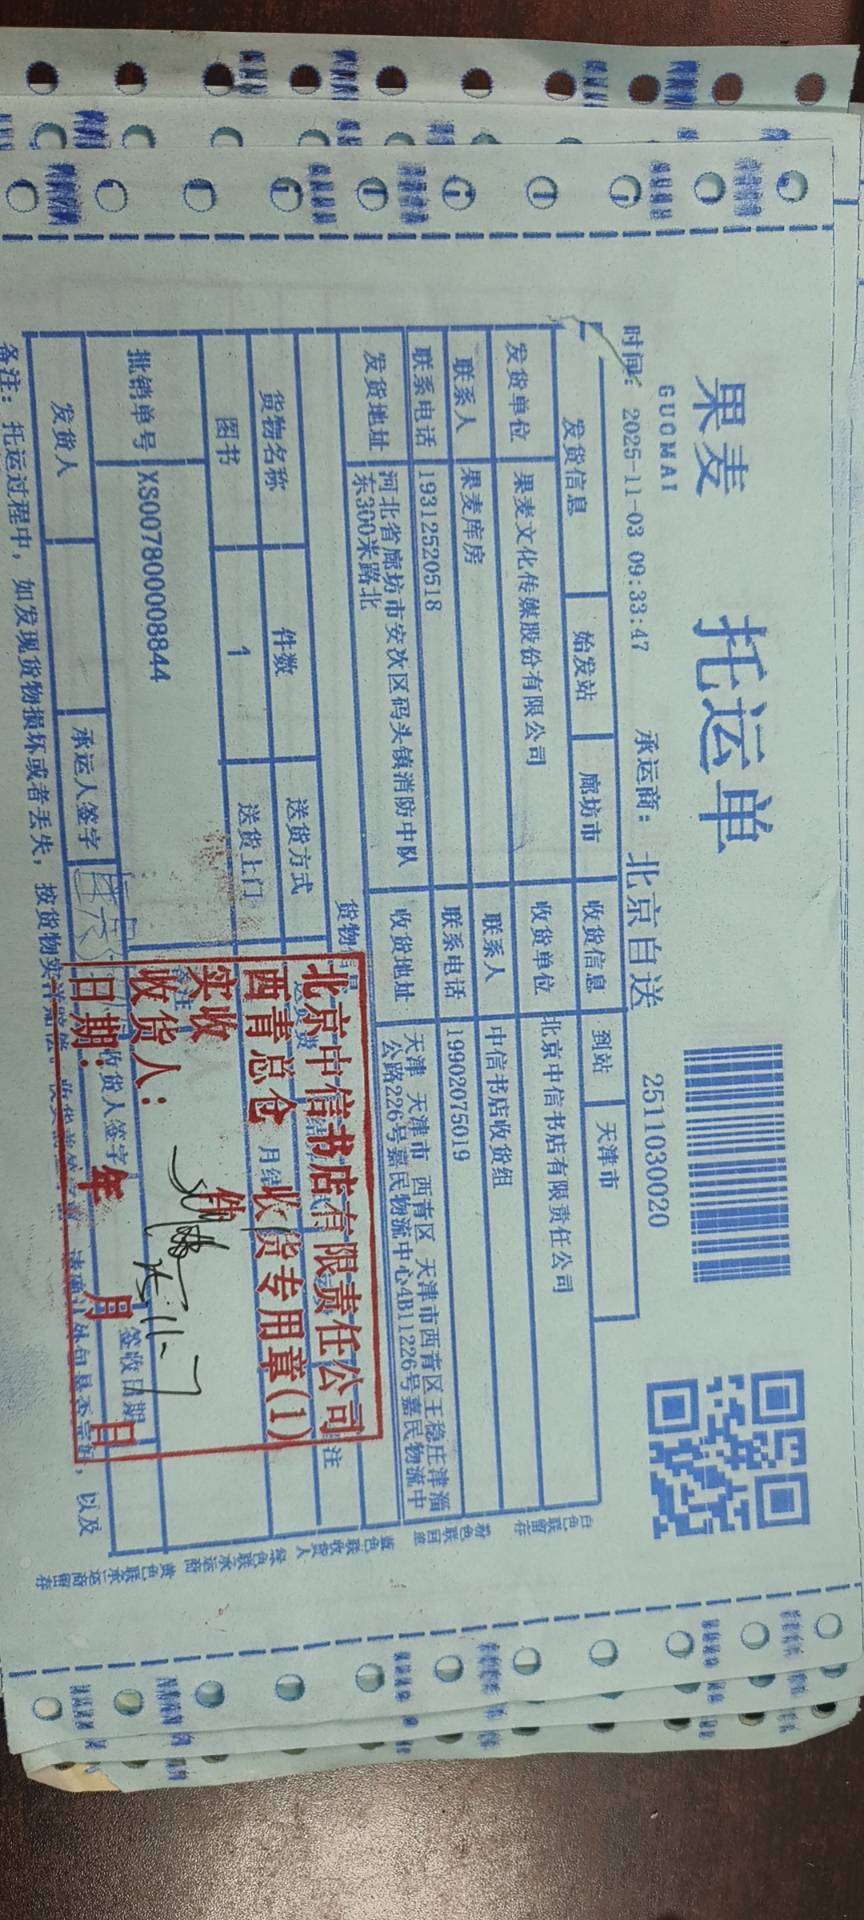 果麦 托运单
GUOMAI
时间: 2025-11-03 09:33:47 承运商: 北京自送 2511030020
发货信息 始发站 廊坊市 收货信息 到站 天津市
发货单位 果麦文化传媒股份有限公司 收货单位 北京中信书店有限责任公司
联系人 果麦库房 联系人 中信书店收货组
联系电话 19312520518 联系电话 19902075019
发货地址 河北省廊坊市安次区码头镇消防中队 收货地址 天津 天津市 西青区 天津市西青区王稳庄津淄
东300米路北 公路226号嘉民物流中心4B11226号嘉民物流中
货物信息
货物名称 件数 送货方式 备注
图书 1 送货上门 月结
批销单号 XS007800008844 备注
发货人 承运人签字 收货人签字 签收日期
备注: 托运过程中, 如发现货物损坏或者丢失, 按货物实
以及
北京中信书店有限责任公司
西青总仓 收货专用章(1)
实收 件
收货人:
日期: 年 月 日
11-7
白色联留存
粉色联回单
蓝色联收货人
绿色联承运商
黄色联承运商留存